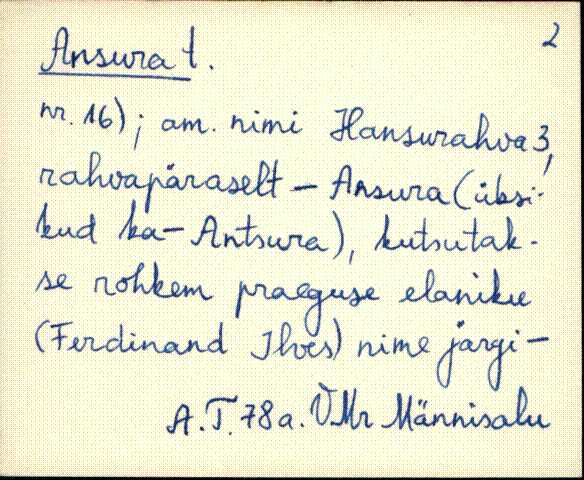 2
Ansura t.
nr. 16); am. nimi Hansurahva 3,
rahvapäraselt – Ansura (üksi-
kud ka – Antsura), kutsutak-
se rohkem praeguse elaniku
(Ferdinand Ilves) nime järgi –
A.T. 78a. VMr Männisalu